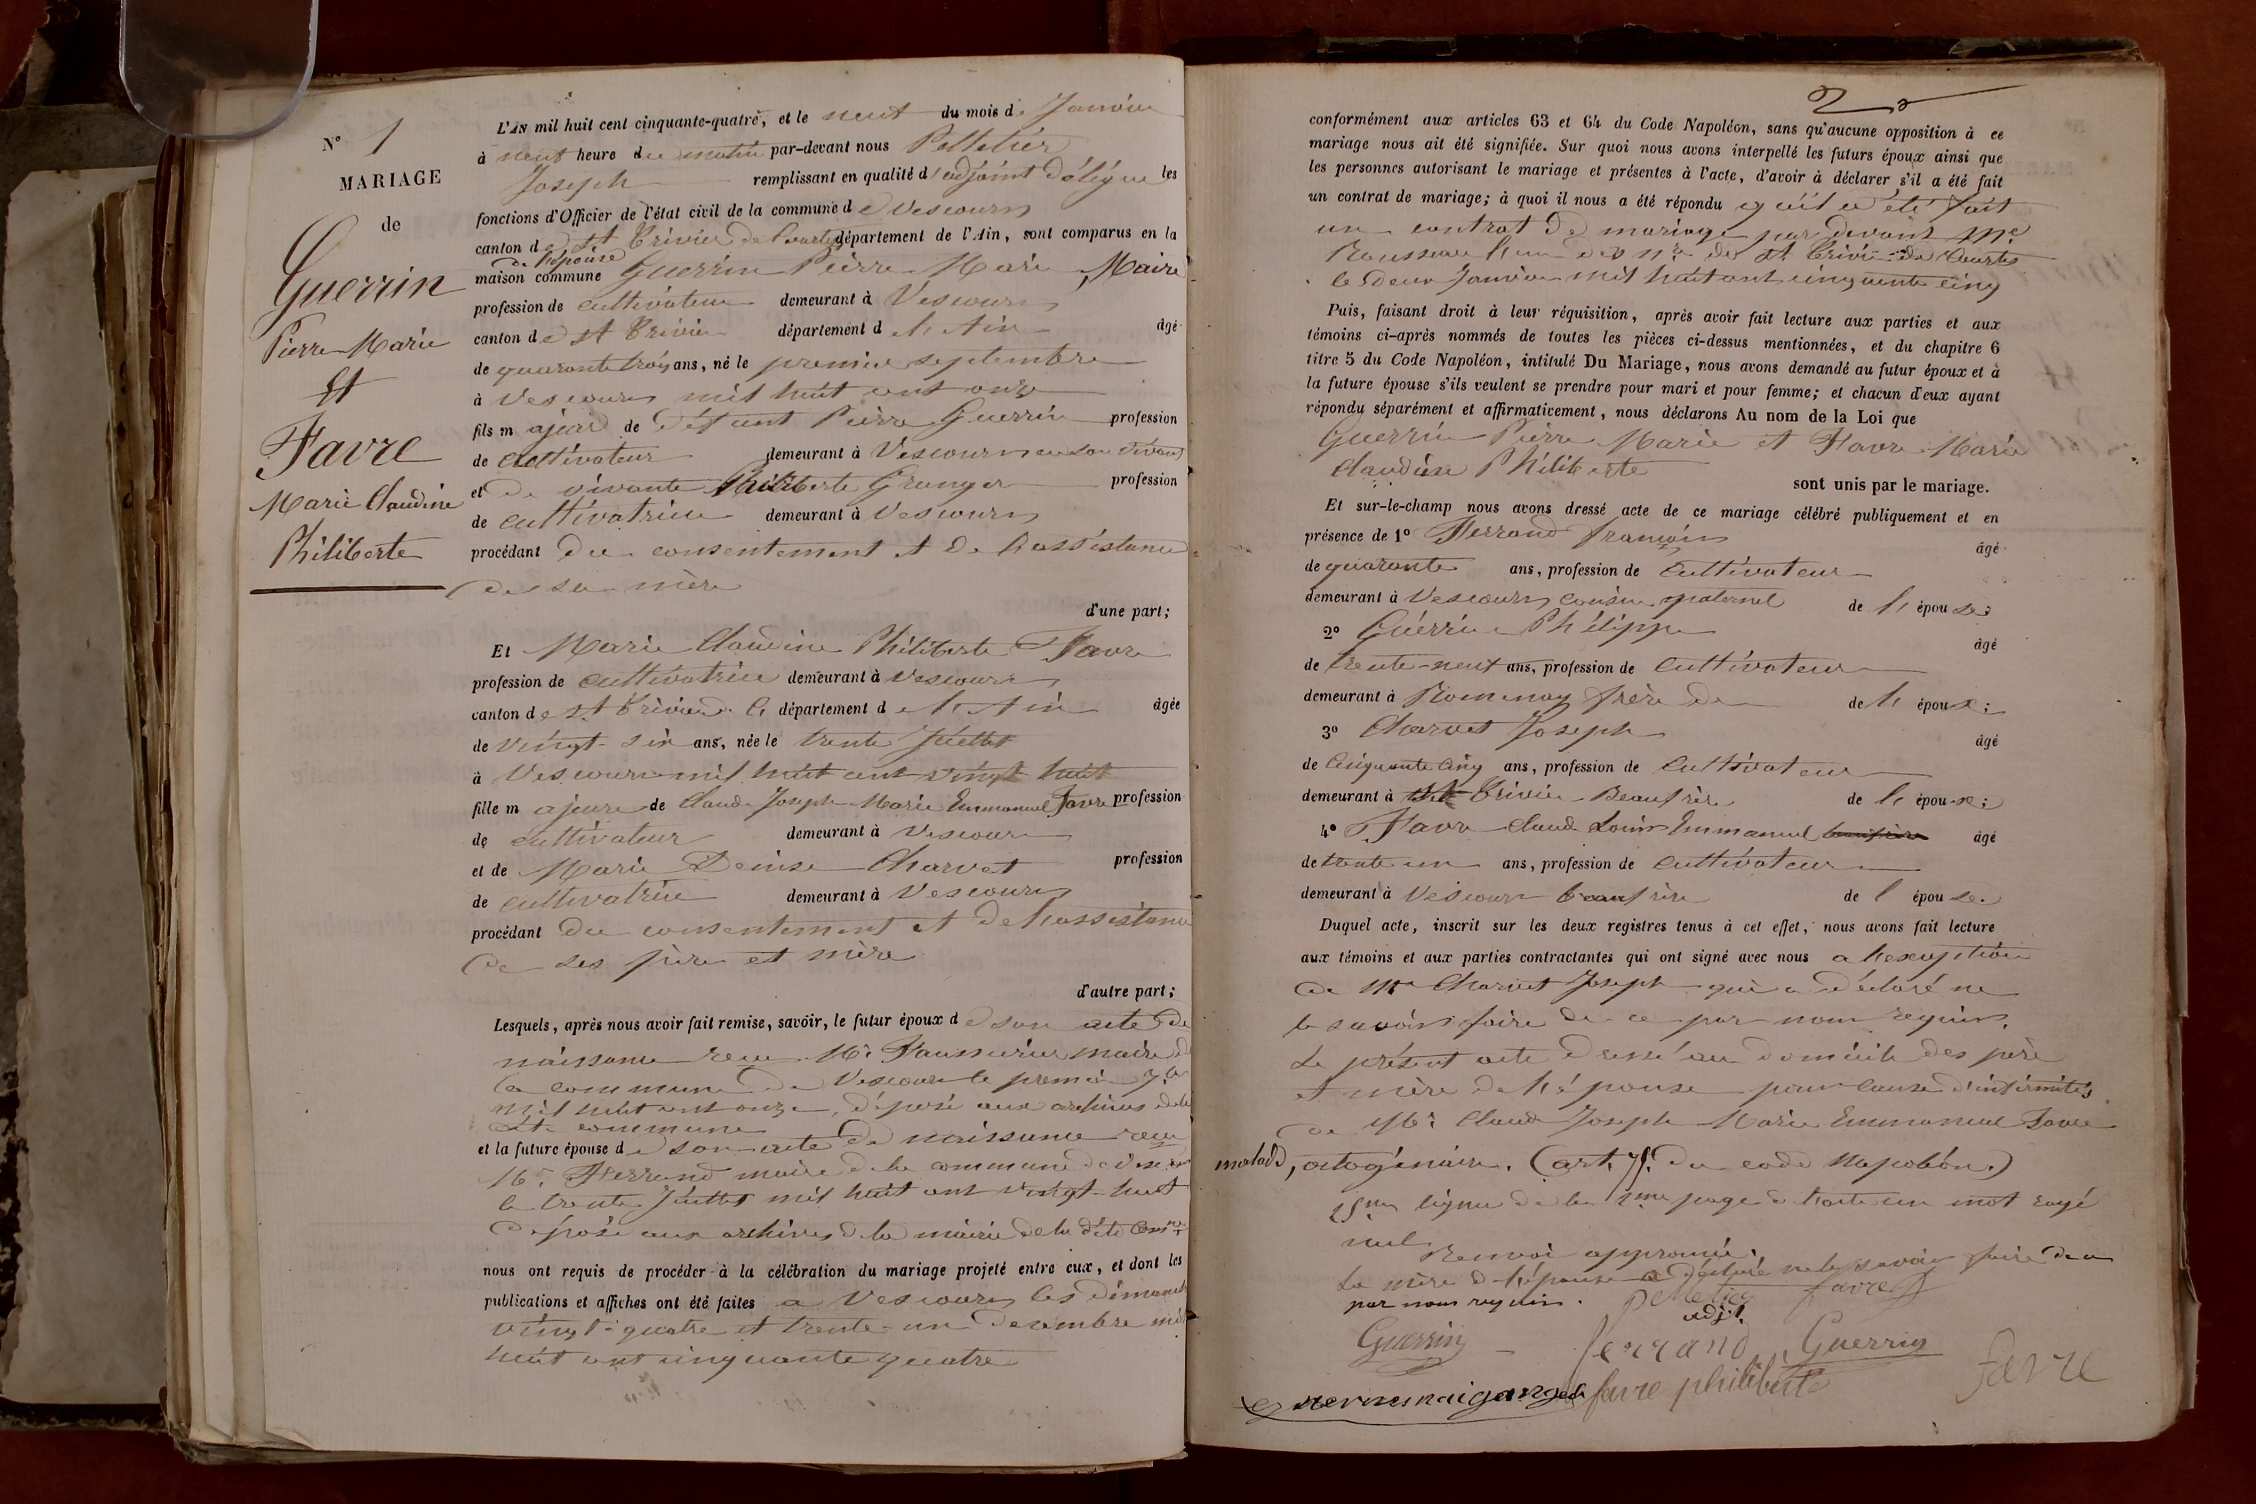 N° 1
MARIAGE
de
Guerrin
Pierre Marie
Et
Favre
Marie Claudine
Philiberte
L'AN mil huit cent cinquante-quatre, et le neuf du mois de Janvier
à neuf heure du matin par-devant nous Pelletier
Joseph remplissant en qualité d'adjoint délégué les
fonctions d'Officier de l'état civil de la commune de Vescours
canton de St Trivier de Courtes département de l'Ain, sont comparus en la
de l'épouse
maison commune Guerrin Pierre Marie, Maire
profession de cultivateur demeurant à Vescours
canton de St Trivier département de l'Ain âgé
de quarante trois ans, né le premier septembre
à Vescours mil huit cent onze
fils majeur de défunt Pierre Guerrin profession
de cultivateur demeurant à Vescours en son vivant
et de vivante Philiberte Granger profession
de cultivatrice demeurant à Vescours
procédant du consentement et de l'assistance
de sa mère
d'une part;
Et Marie Claudine Philiberte Favre
profession de cultivatrice demeurant à Vescours
canton de St Trivier d. C. département de l'Ain âgée
de vingt-six ans, née le trente Juillet
à Vescours mil huit cent vingt huit
fille majeure de Claude Joseph Marie Emmanuel Favre profession
de cultivateur demeurant à Vescours
et de Marie Denise Charvet profession
de cultivatrice demeurant à Vescours
procédant du consentement et de l'assistance
de ses père et mère
d'autre part;
Lesquels, après nous avoir fait remise, savoir, le futur époux de son acte de
naissance reçu Mr maire de
la commune de Vescours le premier 7bre
mil huit cent onze, déposé aux archives de la
dte commune
et la future épouse de son acte de naissance reçu
Mr Ferrand maire de la commune de Vescours
le trente Juillet mil huit cent vingt-huit
déposé aux archives de la mairie de la dite Comne
nous ont requis de procéder à la célébration du mariage projeté entre eux, et dont les
publications et affiches ont été faites à Vescours les dimanches
vingt-quatre et trente-un décembre mil
huit cent cinquante quatre
2
conformément aux articles 63 et 64 du Code Napoléon, sans qu'aucune opposition à ce
mariage nous ait été signifiée. Sur quoi nous avons interpellé les futurs époux ainsi que
les personnes autorisant le mariage et présentes à l'acte, d'avoir à déclarer s'il a été fait
un contrat de mariage; à quoi il nous a été répondu qu'il a été fait
un contrat de mariage par devant Me
Rousseau l'un des nres de St Trivier de Courtes
le deux Janvier mil huit cent cinquante cinq
Puis, faisant droit à leur réquisition, après avoir fait lecture aux parties et aux
témoins ci-après nommés de toutes les pièces ci-dessus mentionnées, et du chapitre 6
titre 5 du Code Napoléon, intitulé Du Mariage, nous avons demandé au futur époux et à
la future épouse s'ils veulent se prendre pour mari et pour femme; et chacun d'eux ayant
répondu séparément et affirmativement, nous déclarons Au nom de la Loi que
Guerrin Pierre Marie et Favre Marie
Claudine Philiberte
sont unis par le mariage.
Et sur-le-champ nous avons dressé acte de ce mariage célébré publiquement et en
présence de 1° Ferrand françois âgé
de quarante ans, profession de Cultivateur
demeurant à Vescours cousin paternel de l'épouse;
2° Guérrin Philippe âgé
de trente-neuf ans, profession de Cultivateur
demeurant à Romenay frère de de l'époux;
3° Charvet Joseph âgé
de Cinquante Cinq ans, profession de Cultivateur
demeurant à St Trivier Beaufrère de l'épouse;
4° Favre Claude Louis Emmanuel beaufrère âgé
de trente un ans, profession de Cultivateur
demeurant à Vescours beaufrère de l'épouse.
Duquel acte, inscrit sur les deux registres tenus à cet effet, nous avons fait lecture
aux témoins et aux parties contractantes qui ont signé avec nous a l'exception
de Mr Charvet Joseph qui a déclaré ne
le savoir faire de ce par nous requis.
Le présent acte dressé au domicile des père
et mère de l'épouse pour cause d'infirmités
de Mr Claude Joseph Marie Emmanuel Favre
malade, octogénaire. (art. 75. du code Napoléon.)
25me ligne de la 2me page de l'acte un mot rayé
nul
Renvoi approuvé.
La mère de l'épouse a déclaré ne le savoir faire de ce
par nous requis. Pelletier favre
adjt.
Guerrin ferrand Guerrin
favre philiberte favre